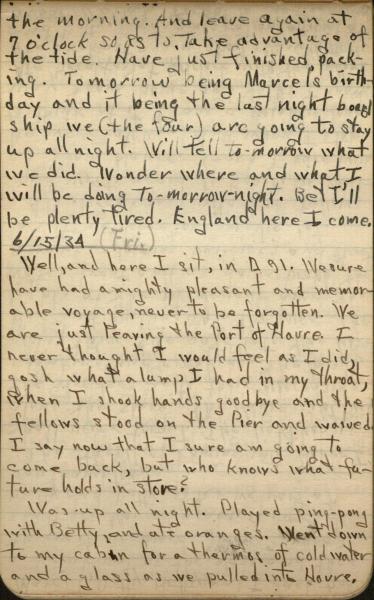 the morning. And leave again at
7 o'clock so as to take advantage of
the tide. Have just finished pack-
ing. Tomorrow being Marcel's birth-
day and it being the last night board
ship we (the four) are going to stay
up all night. Will tell to-morrow what
we did. Wonder where and what I
will be doing to-morrow-night. Bet I'll
be plenty tired. England here I come.
6/15/34 (Fri.)
Well, and here I sit, in D 91. We sure
have had a mighty pleasant and memor-
able voyage, never to be forgotten. We
are just leaving the Port of Havre. I
never thought I would feel as I did,
gosh what a lump I had in my throat,
when I shook hands goodbye and the
fellows stood on the Pier and waived.
I say now that I sure am going to
come back, but who knows what fu-
ture holds in store?
Was up all night. Played ping-pong
with Betty, and ate oranges. Went down
to my cabin for a thermos of cold water
and a glass as we pulled into Havre.